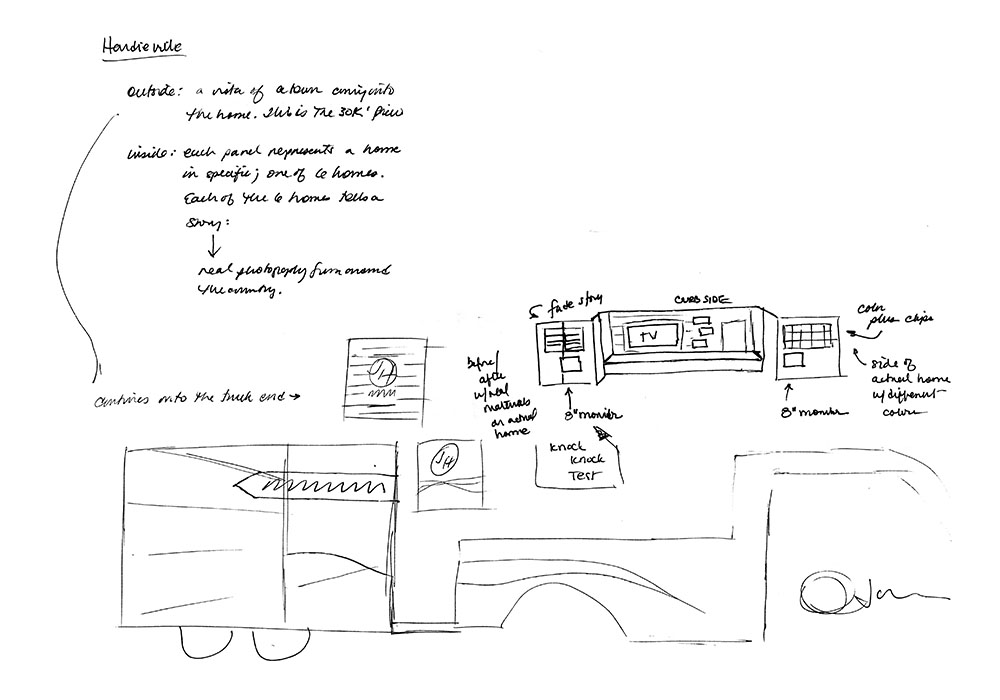 Hardieville
outside: a vista of a town coming into
the home. This is The 30K' view
inside: each panel represents a home
in specific; one of 6 homes.
Each of the 6 homes tells a
story:
real photography from around
the country.
fade story
CURB SIDE
color
plus chips
TV
before/
after
w/real
materials
on actual
home
side of
actual home
w/different
colors
8" monitor
8" monitor
continues onto the truck end →
JH
Knock
Knock
Test
JH